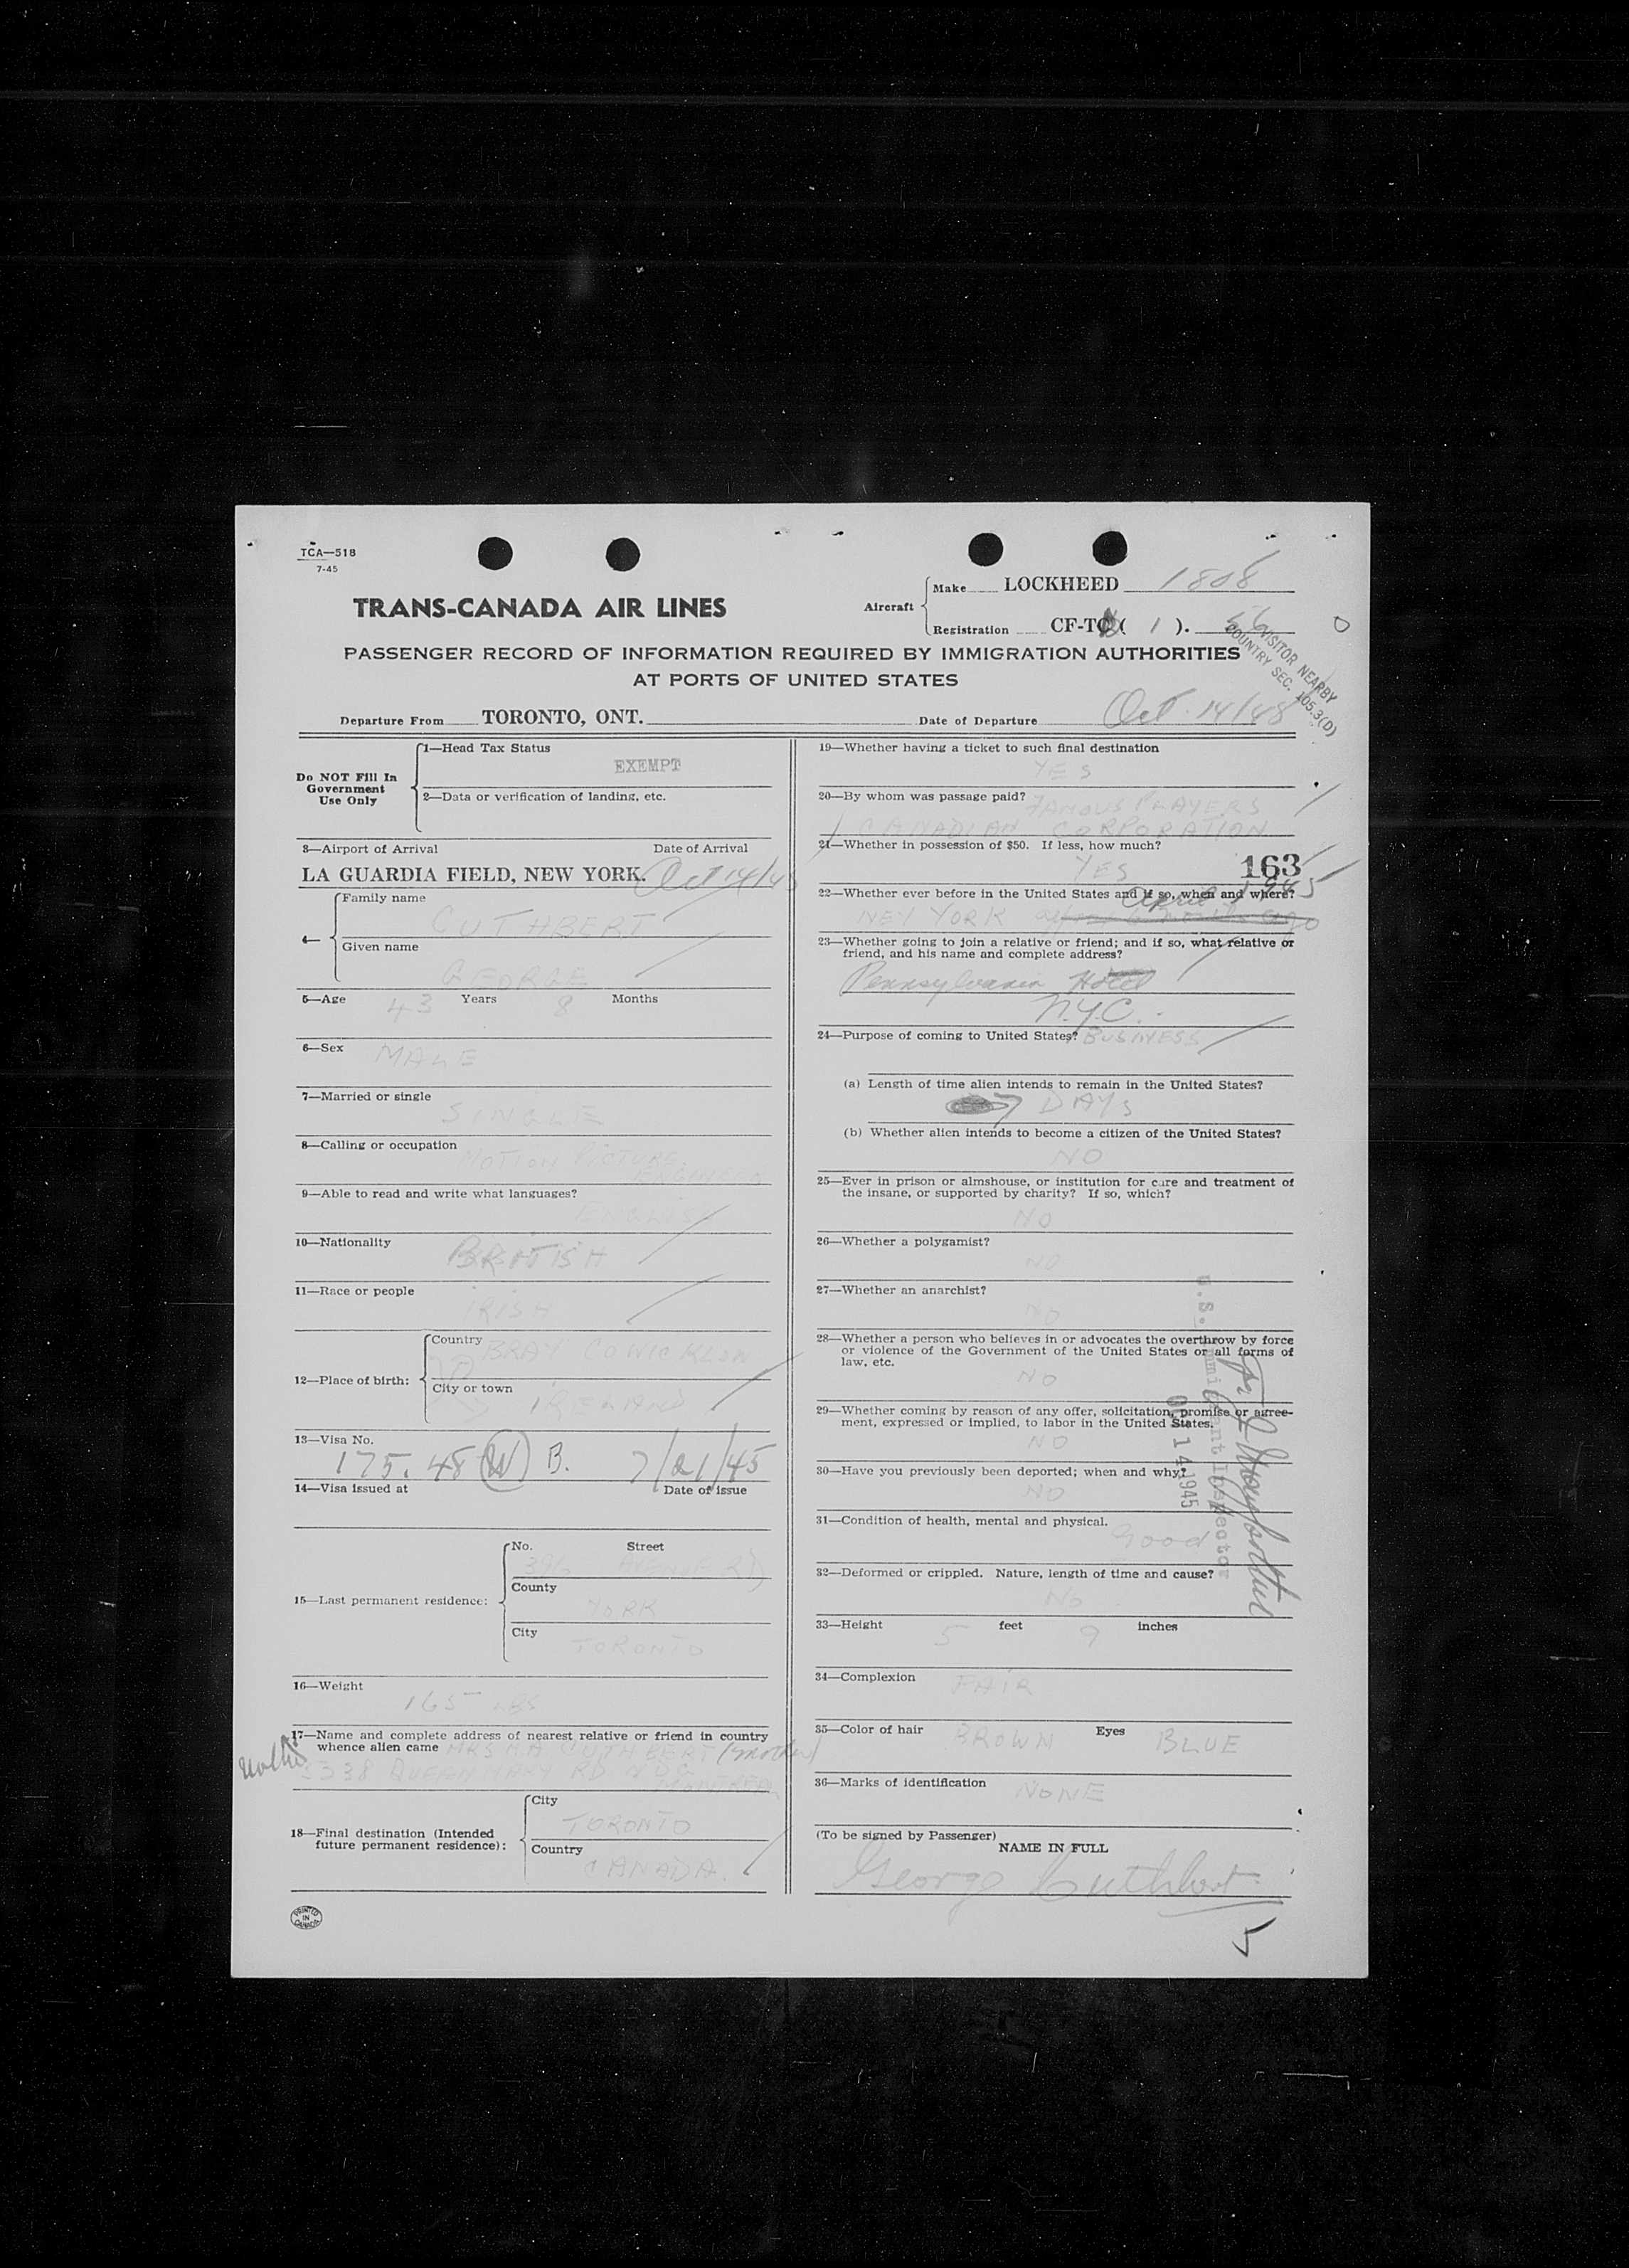 TCA—518
7-45
TRANS-CANADA AIR LINES
Aircraft
Make LOCKHEED 1808
Registration CF-TC ( 1 ). 56
VISITOR NEARBY
COUNTRY SEC. 105.3(D)
PASSENGER RECORD OF INFORMATION REQUIRED BY IMMIGRATION AUTHORITIES
AT PORTS OF UNITED STATES
Departure From TORONTO, ONT.
Date of Departure Oct. 14/45
Do NOT Fill In
Government
Use Only
1—Head Tax Status
EXEMPT
2—Data or verification of landing, etc.
3—Airport of Arrival Date of Arrival
LA GUARDIA FIELD, NEW YORK. Oct 14/45
4—
Family name
CUTHBERT
Given name
GEORGE
5—Age 43 Years 8 Months
6—Sex MALE
7—Married or single
SINGLE
8—Calling or occupation
MOTION PICTURE
ENGINEER
9—Able to read and write what languages?
ENGLISH
10—Nationality
BRITISH
11—Race or people
IRISH
12—Place of birth:
Country
BRAY CO WICKLOW
City or town
IRELAND
13—Visa No.
175. 48 (W) B. 7/21/45
14—Visa issued at Date of issue
15—Last permanent residence:
No. Street
RD
County
YORK
City
TORONTO
16—Weight
165 LBS
17—Name and complete address of nearest relative or friend in country
whence alien came MRS CUTHBERT (mother)
mother
3338 QUEEN MARY RD
MONTREAL
18—Final destination (Intended
future permanent residence):
City
TORONTO
Country
CANADA.
PRINTED
IN
CANADA
19—Whether having a ticket to such final destination
YES
20—By whom was passage paid?
FAMOUS PLAYERS
CANADIAN CORPORATION
21—Whether in possession of $50. If less, how much?
YES
163
22—Whether ever before in the United States and if so, when and where?
April 1945
NEW YORK ago
23—Whether going to join a relative or friend; and if so, what relative or
friend, and his name and complete address?
Pennsylvania Hotel
N.Y.C.
24—Purpose of coming to United States? BUSINESS
(a) Length of time alien intends to remain in the United States?
7 DAYS
(b) Whether alien intends to become a citizen of the United States?
NO
25—Ever in prison or almshouse, or institution for care and treatment of
the insane, or supported by charity? If so, which?
NO
26—Whether a polygamist?
NO
27—Whether an anarchist?
NO
28—Whether a person who believes in or advocates the overthrow by force
or violence of the Government of the United States or all forms of
law, etc.
NO
29—Whether coming by reason of any offer, solicitation, promise or agree-
ment, expressed or implied, to labor in the United States.
NO
30—Have you previously been deported; when and why?
NO
31—Condition of health, mental and physical.
Good
32—Deformed or crippled. Nature, length of time and cause?
No
33—Height 5 feet 9 inches
34—Complexion FAIR
35—Color of hair BROWN Eyes BLUE
36—Marks of identification
NONE
(To be signed by Passenger)
NAME IN FULL
George Cuthbert
U.S. Immigrant Inspector
OCT 14 1945
5